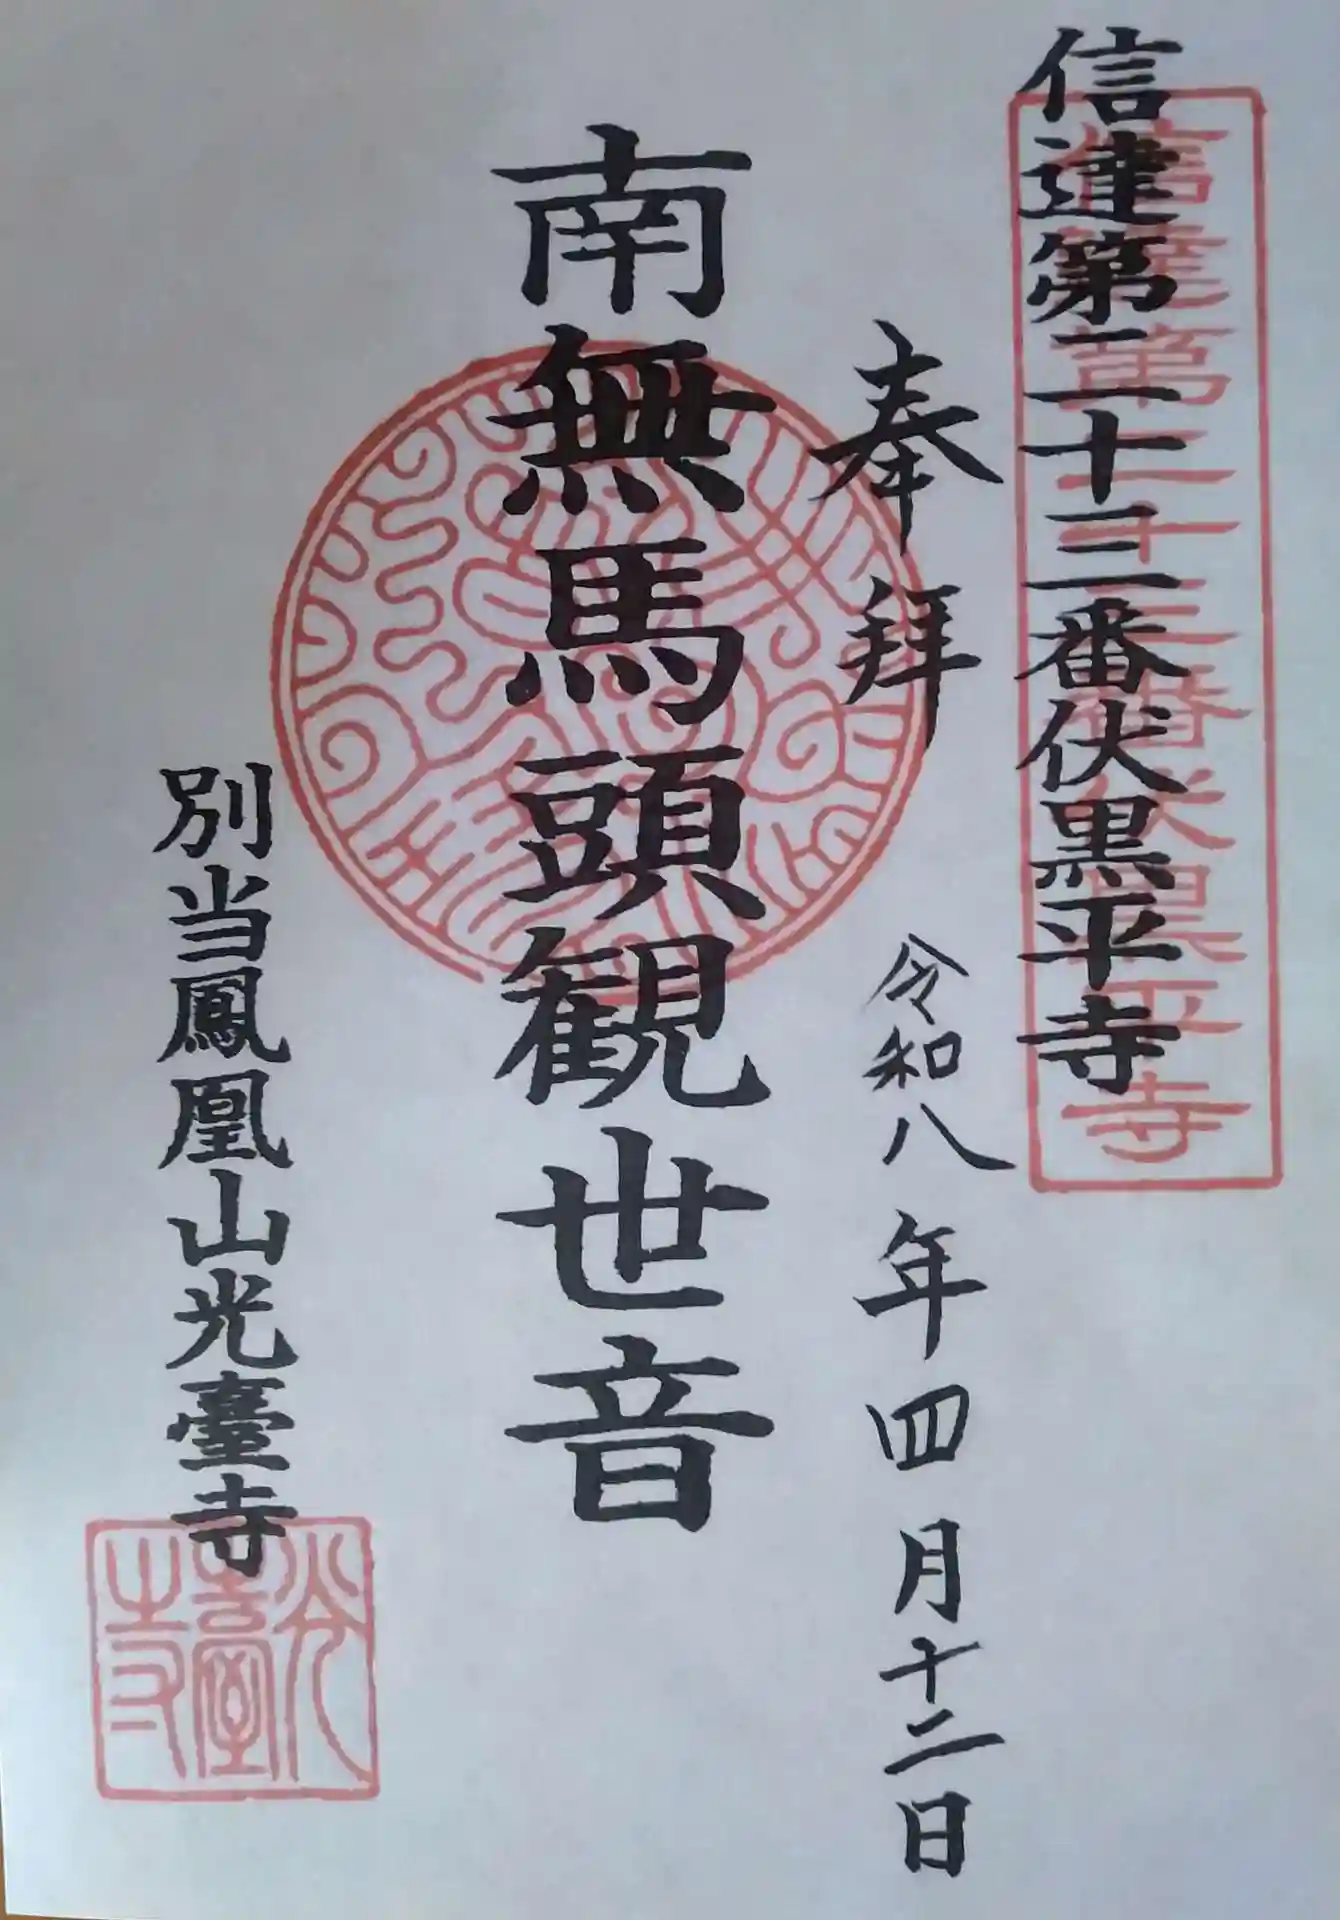 信達第二十三番伏黒平寺
信達第二十三番伏黒平寺
奉拝
令和八年四月十二日
南無馬頭観世音
別当鳳凰山光臺寺
光臺寺